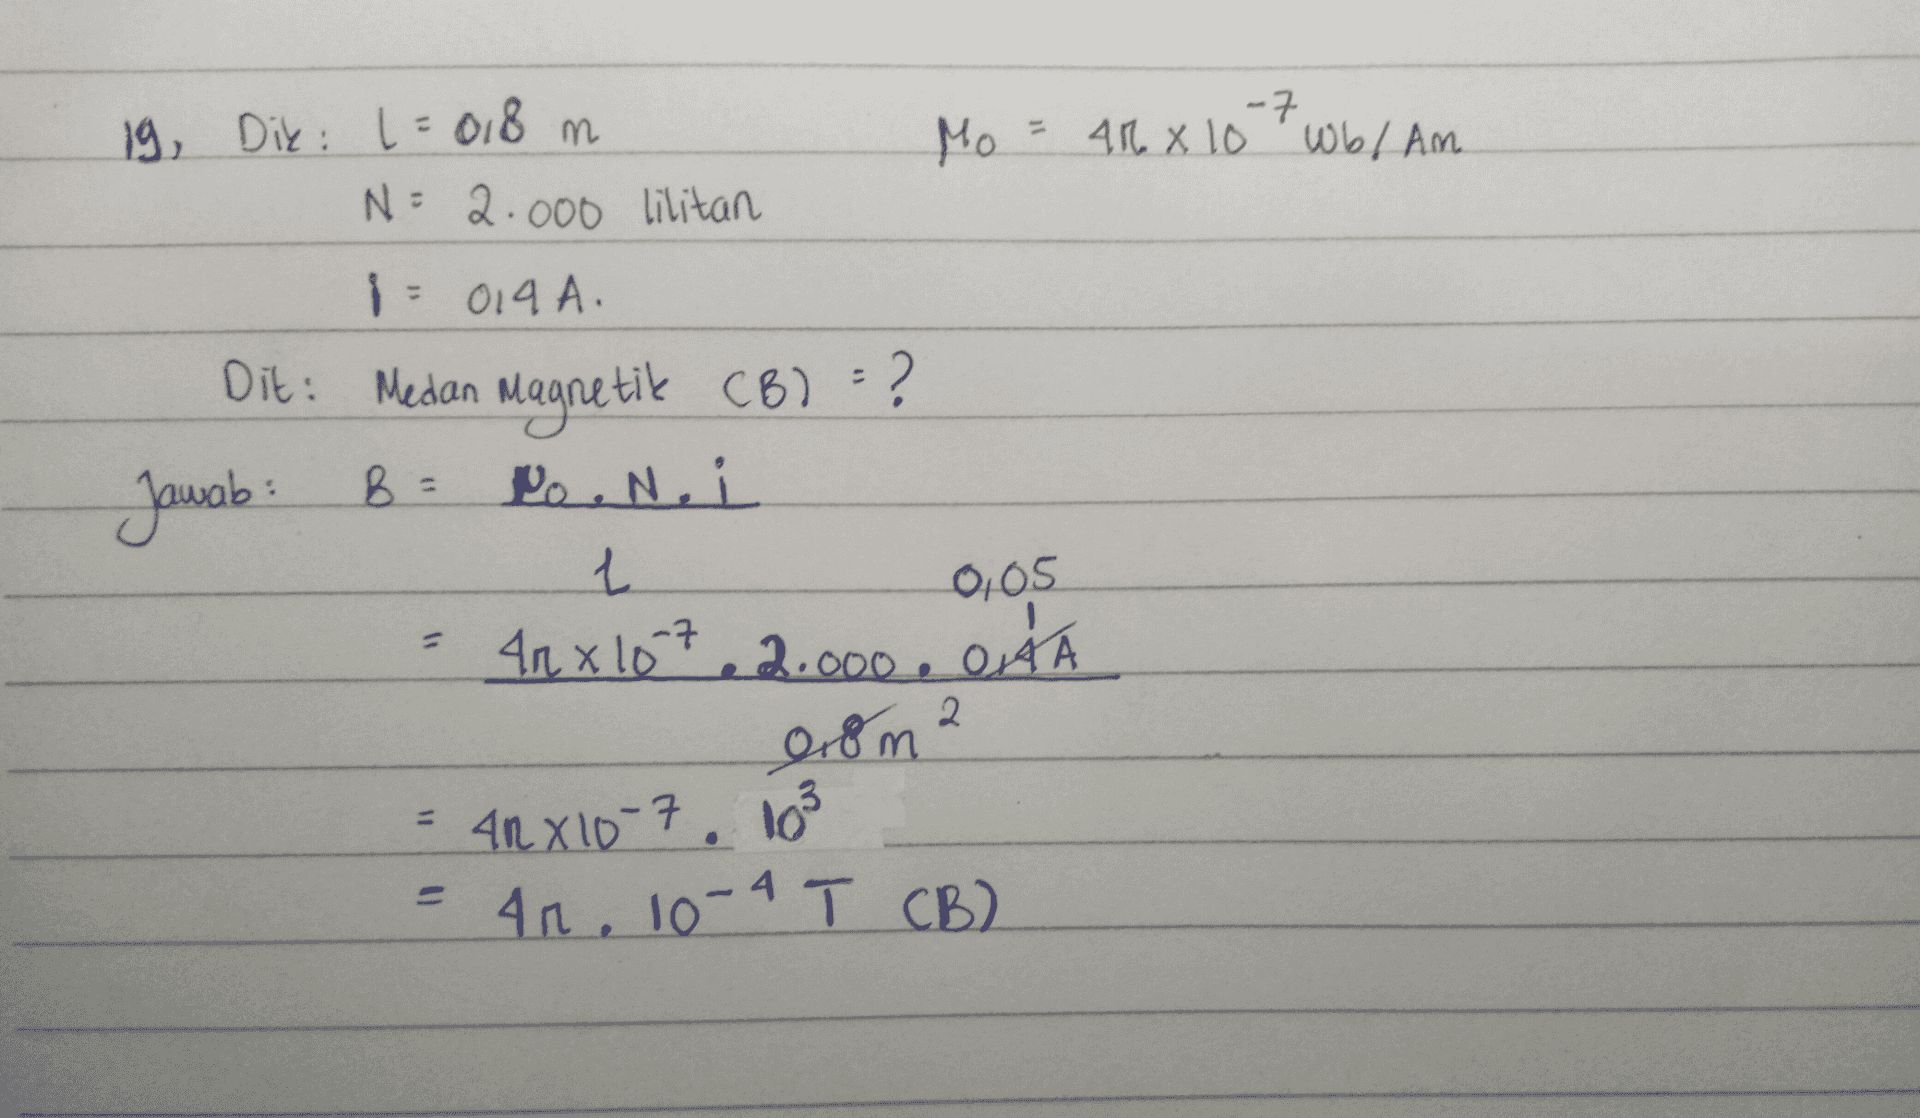 19, Dik : l = 0,8 m μ0 = 4π x 10^-7 Wb/Am
N = 2.000 lilitan
i = 0,4 A.
Dit : Medan Magnetik (B) = ?
Jawab : B = μ0 . N . i
l 0,05
= 4π x 10^-7 . 2.000 . 0,4 A 1
0,8 m 2
= 4π x 10^-7 . 10^3
= 4π . 10^-4 T (B)